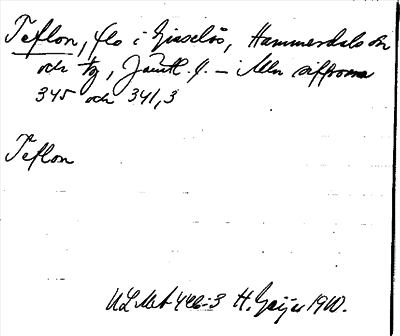 Teflon, flo i Gisselås, Hammerdals sn
och tg, Jämtl. l. – Mellan siffrorna
345 och 341,3
Teflon
ULMA 446:3 H. Geijer 1910.